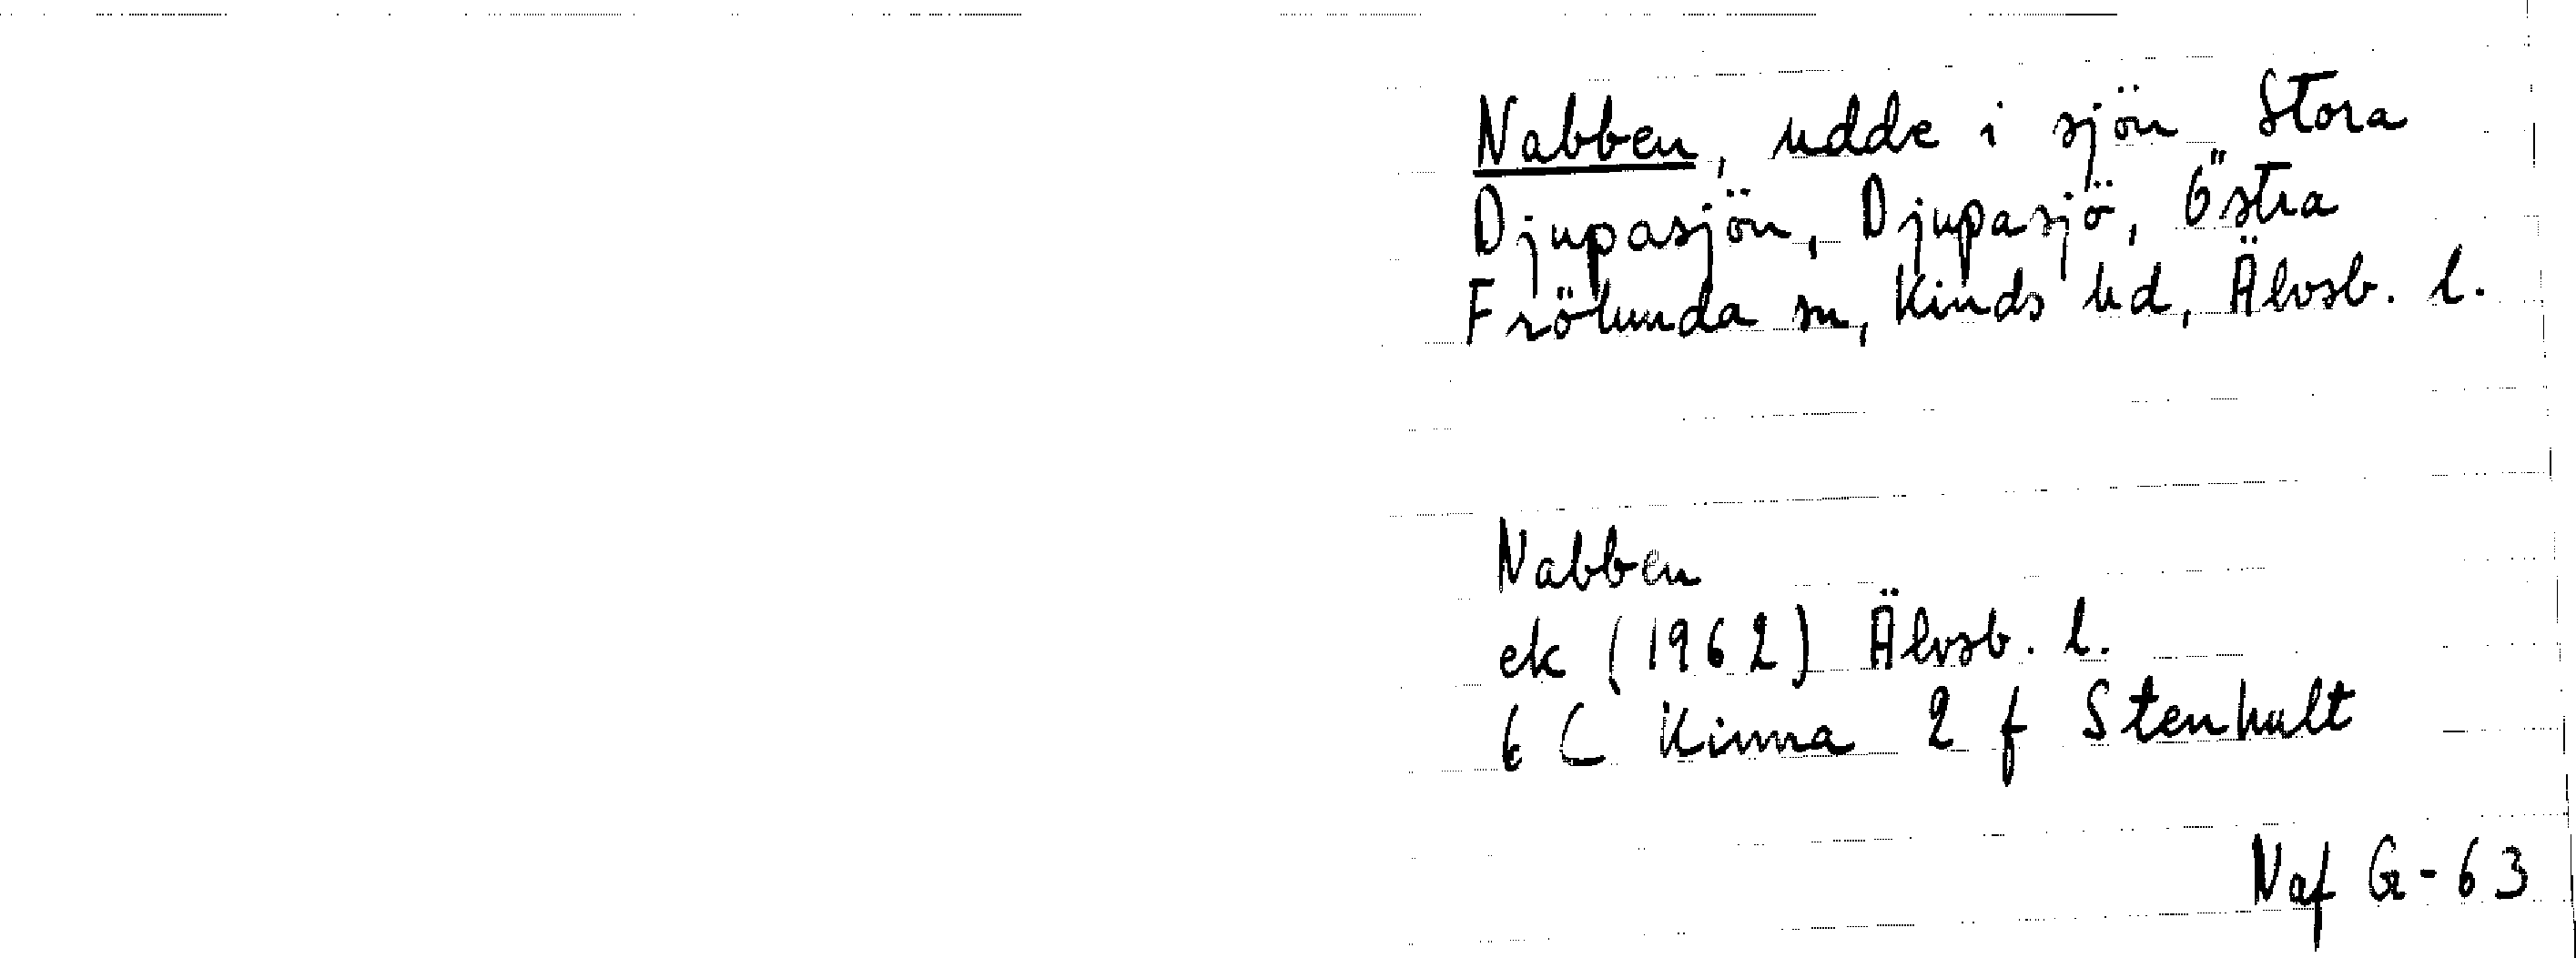 Nabben, udde i sjön Stora
Djupasjön, Djupasjö, Östra
Frölunda sn, Kinds hd, Älvsb. l.
Nabben
ek (1962) Älvsb. l.
6 C Kinna 2 f Stenhult
Naf G-63